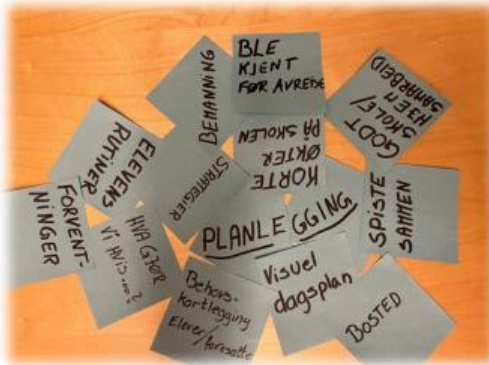 BLE
KJENT
FØR AVREISE
BEMANNING
GODT
SKOLE/
HJEM
SAMARBEID
ELEVENS
RUTINER
STRATEGIER
KORTE
ØKTER
PÅ SKOLEN
SPISTE
SAMMEN
FORVENT-
NINGER
HVA GJØR
VI HVIS...?
PLANLEGGING
Behovs-
kartlegging
Elever/foresatte
Visuel
dagsplan
BOSTED